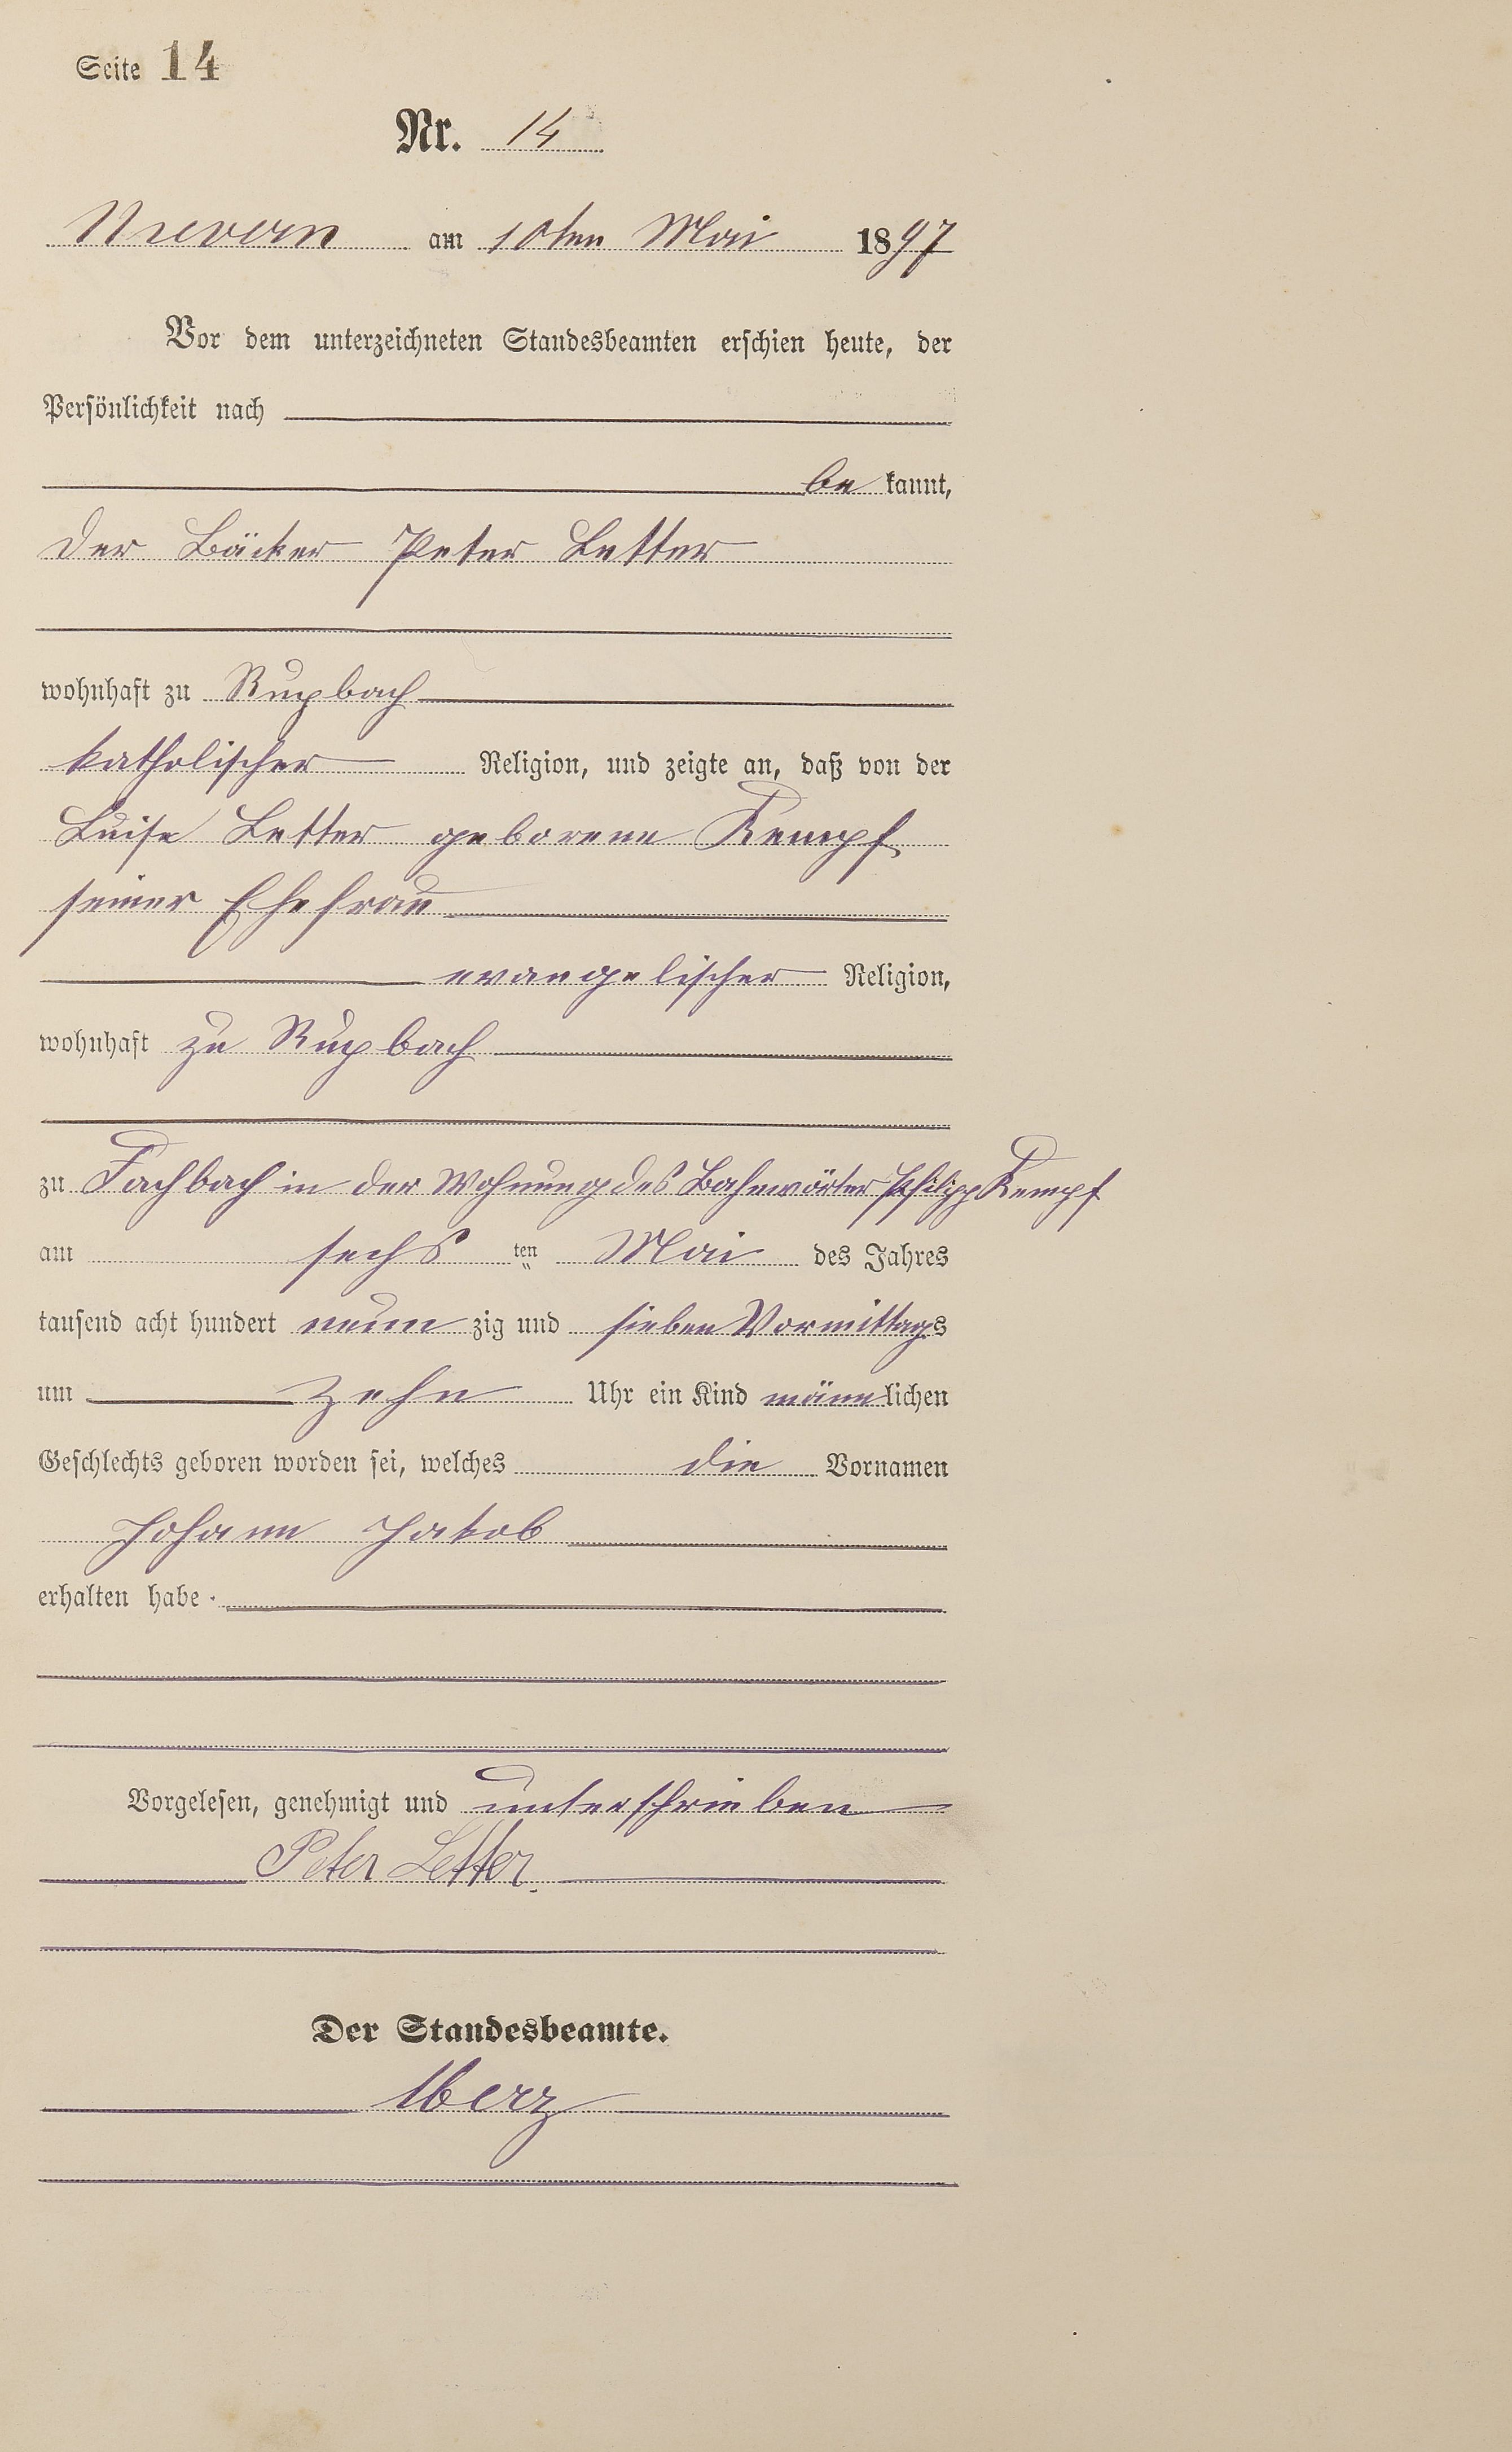 Seite 14
Nr. 14
Nievern am 10ten Mai 1897
Vor dem unterzeichneten Standesbeamten erschien heute, der
Persönlichkeit nach
be kannt,
der Bäcker Peter Letter
wohnhaft zu Rupbach
katholischer Religion, und zeigte an, daß von der
Luise Letter geborene Kempf
seiner Ehefrau
evangelischer Religion,
wohnhaft zu Rupbach
zu Fachbach in der Wohnung des Bahnwärter Philipp Kempf
am sechs ten Mai des Jahres
tausend acht hundert neun zig und sieben Vormittags
um zehn Uhr ein Kind männlichen
Geschlechts geboren worden sei, welches die Vornamen
Johann Jakob
erhalten habe.
Vorgelesen, genehmigt und unterschrieben
Peter Letter.
Der Standesbeamte.